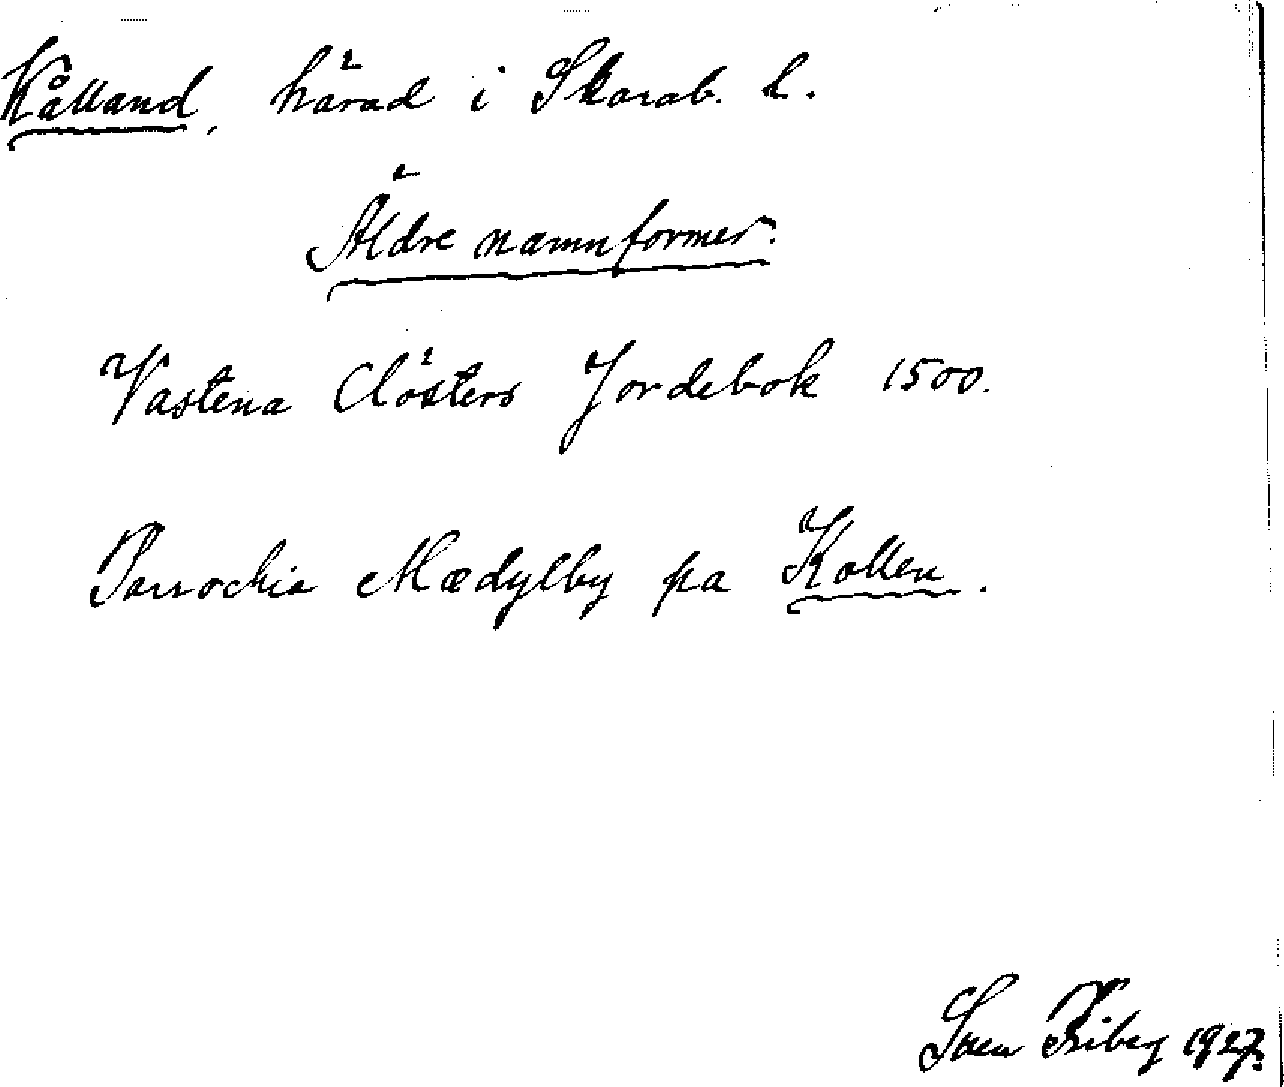 Kålland, härad i Skarab. l.
Äldre namnformer.
Vastena Clösters Jordebok 1500.
Parrochia Mædylby pa Kollen.
Sven Friberg 1927.